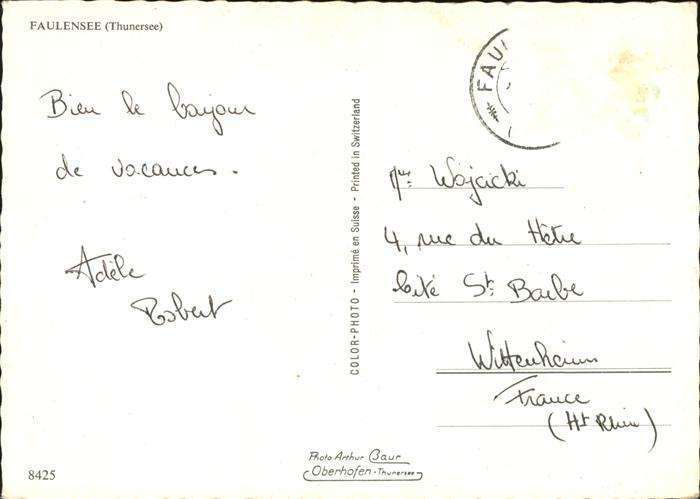 FAULENSEE (Thunersee)
FAU
Bien le bonjour
de vacances.
Adèle
Robert
COLOR-PHOTO - Imprimé en Suisse - Printed in Switzerland
Wojcicki
4, rue du Hêtre
Cité St. Barbe
Wittenheim
France
(Ht Rhin)
Photo Arthur Baur
Oberhofen - Thunersee
8425